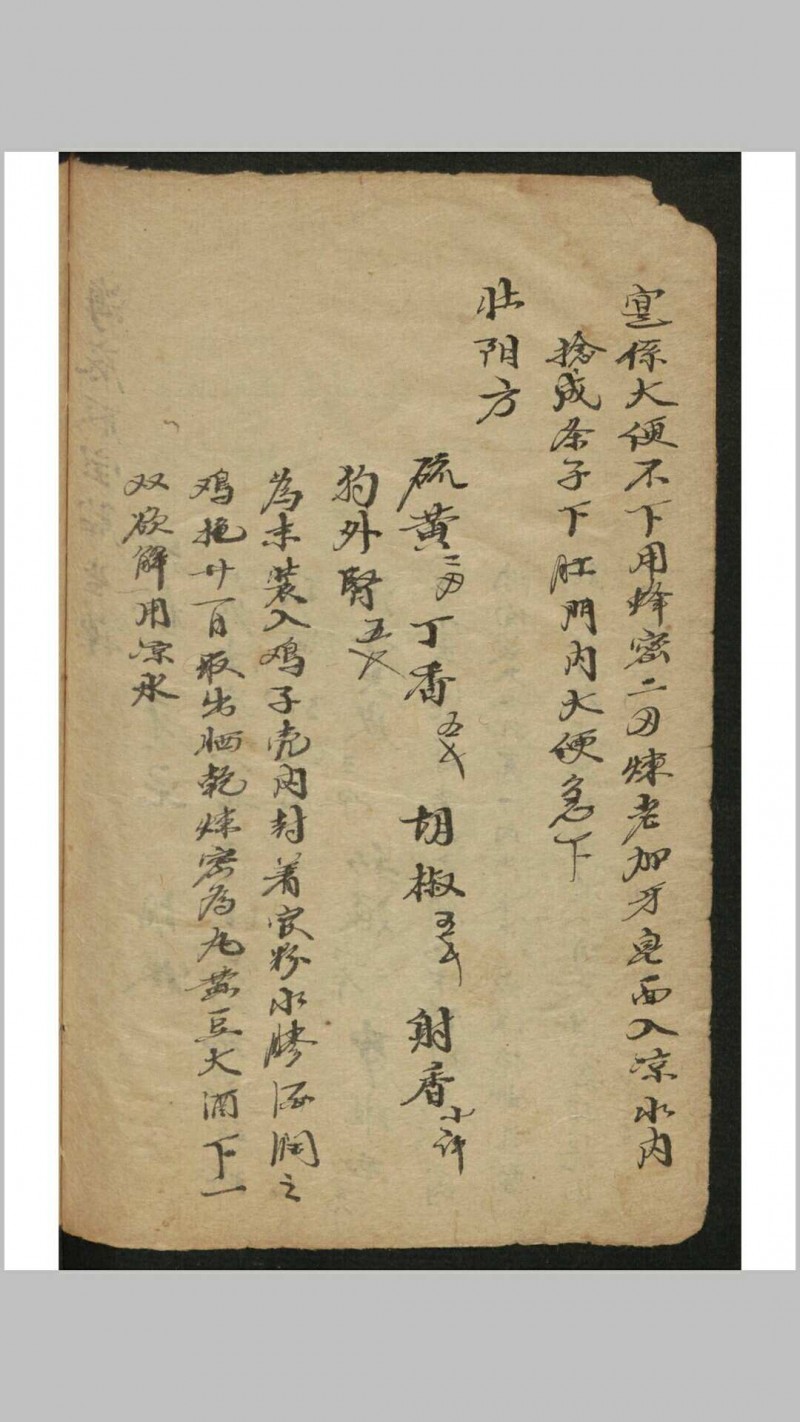 寔係大便不下用蜂密二刄煉老加牙皂面入凉水内
捻成条子下肛門内大便急下
壮阳方
硫黄二刄丁香五个胡椒五个射香小許
狗外腎五个
為末装入鸡子壳内封着官粉水膠泥润之
鸡抱廿一日取出晒乾煉密為丸黄豆大酒下一
双欲解用凉水